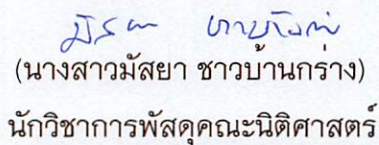 (นางสาวมัสยา ชาวบ้านกร่าง)
นักวิชาการพัสดุคณะนิติศาสตร์